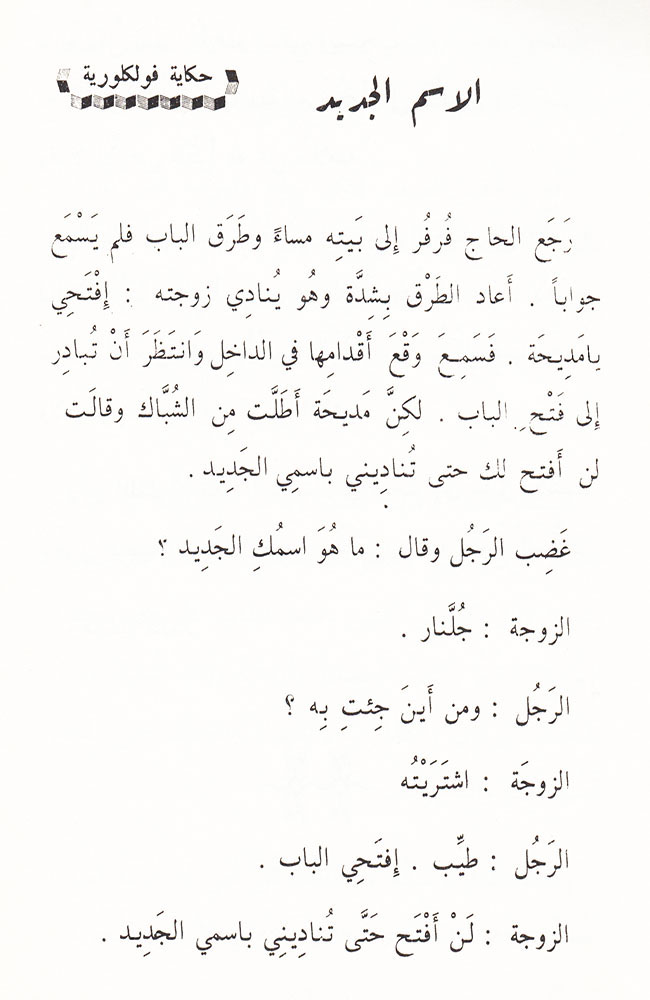 حكاية فولكلورية
الاسم الجديد
رَجَع الحاج فُرفُر إلى بَيتِه مساءً وطَرَق الباب فلم يَسْمَع
جواباً . أَعاد الطَرْق بِشِدَّة وهُو يُنادِي زوجته : إفْتَحِي
يامَدِيحَة . فَسَمِعَ وَقْعَ أَقْدامِها في الداخِل وَانتَظَرَ أَنْ تُبادِر
إلى فَتْحِ الباب . لكِنَّ مَديحَة أَطَلَّت مِن الشُبَّاك وقالَت
لن أَفتح لك حتى تُنادِيني باسمِي الجَدِيد .
غَضِب الرَجُل وقال : ما هُوَ اسمُكِ الجَدِيد ؟
الزوجة : جُلَّنار .
الرَجُل : ومن أَينَ جِئتِ بِه ؟
الزوجَة : اشتَرَيْتُه
الرَجُل : طيِّب . إفتَحِي الباب .
الزوجة : لَنْ أَفْتَح حَتَّى تُنادِينِي باسمي الجَدِيد .